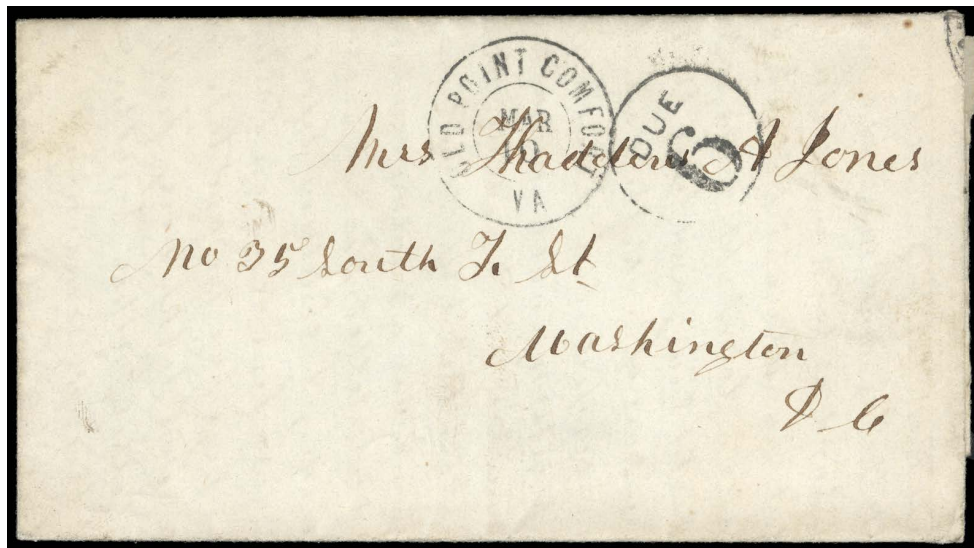 OLD POINT COMFORT
MAR
VA
DUE 6
Mrs Thaddeus A Jones
No 35 South F. St
Washington
D C